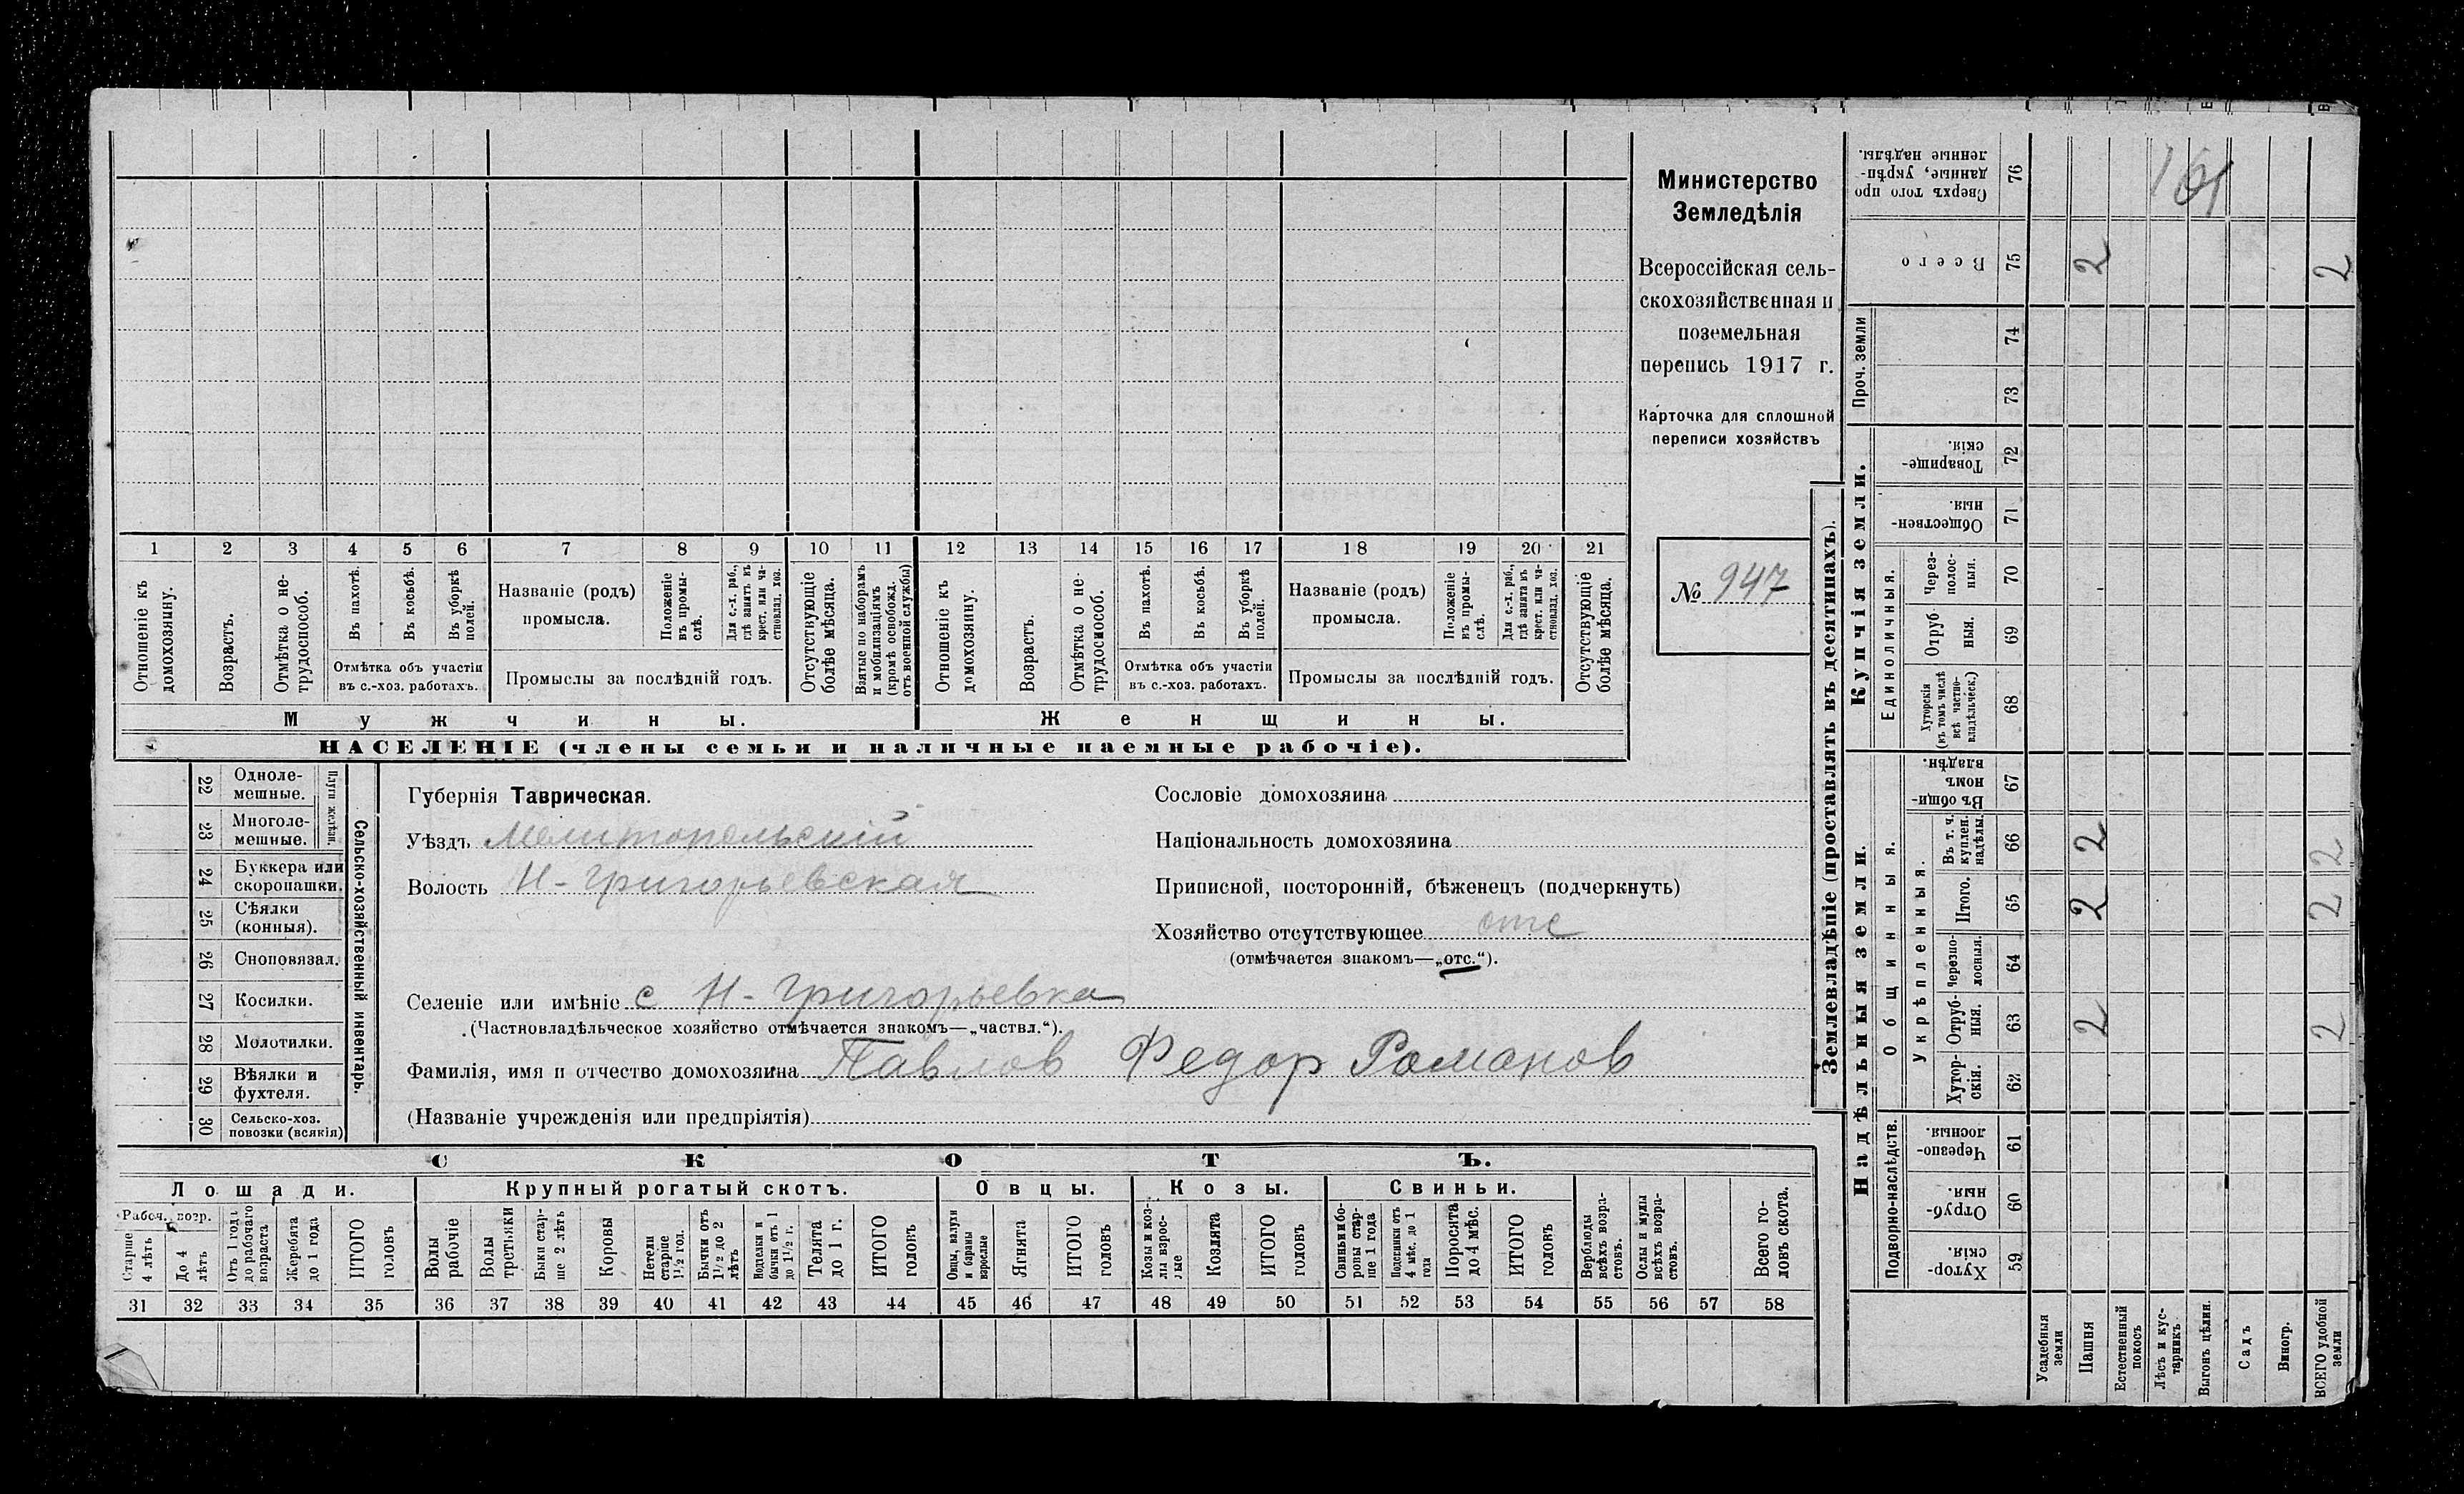 Министерство
Земледѣлія
Всероссійская сель-
скохозяйственная и
поземельная
перепись 1917 г.
Карточка для сплошной
переписи хозяйствъ
№ 947
1 2 3 4 5 6 7 8 9 10 11 12 13 14 15 16 17 18 19 20 21
Отношеніе къ домохозяину.
Возрастъ.
Отмѣтка о не-
трудоспособ.
Въ пахотѣ.
Въ косьбѣ.
Въ уборкѣ полей.
Отмѣтка объ участіи
въ с.-хоз. работахъ.
Названіе (родъ)
промысла.
Положеніе
въ промы-
слѣ.
Для с.-х. раб.,
гдѣ занятъ въ
крест. или ча-
стновлад. хоз.
Промыслы за послѣдній годъ.
Отсутствующіе
болѣе мѣсяца.
Взятые по наборамъ
и мобилизаціямъ
(кромѣ освобожд.
отъ военной службы)
Отношеніе къ
домохозяину.
Возрастъ.
Отмѣтка о не-
трудоспособ.
Въ пахотѣ.
Въ косьбѣ.
Въ уборкѣ
полей.
Отмѣтка объ участіи
въ с.-хоз. работахъ.
Названіе (родъ)
промысла.
Положеніе
въ промы-
слѣ.
Для с.-х. раб.,
гдѣ занята въ
крест. или ча-
стновлад. хоз.
Промыслы за послѣдній годъ.
Отсутствующіе
болѣе мѣсяца.
Мужчины.
Женщины.
НАСЕЛЕНІЕ (члены семьи и наличные наемные рабочіе).
22 Одноле-
мешные.
23 Многоле-
мешные.
Плуги желѣзн.
24 Буккера или
скоропашки.
25 Сѣялки
(конныя).
26 Сноповязал.
27 Косилки.
28 Молотилки.
29 Вѣялки и
фухтеля.
30 Сельско-хоз.
повозки (всякія)
Сельско-хозяйственный инвентарь.
Губернія Таврическая.
Уѣздъ Мелитопольскій
Волость Н-Григорьевская
Сословіе домохозяина
Національность домохозяина
Приписной, посторонній, бѣженецъ (подчеркнуть)
Хозяйство отсутствующее отс
(отмѣчается знакомъ—„отс.“).
Селеніе или имѣніе с Н-Григорьевка
(Частновладѣльческое хозяйство отмѣчается знакомъ—„частвл.“).
Фамилія, имя и отчество домохозяина Павлов Федор Романов
(Названіе учрежденія или предпріятія)
СКОТЪ.
Лошади. Крупный рогатый скотъ. Овцы. Козы. Свиньи.
Рабоч. возр.
Старше
4 лѣтъ
До 4
лѣтъ
Отъ 1 года
до рабочаго
возраста
Жеребята
до 1 года
ИТОГО
головъ
Волы
рабочіе
Волы
третьяки
Быки стар-
ше 2 лѣтъ
Коровы
Нетели
старше
1½ год.
Бычки отъ
1½ до 2
лѣтъ
Подтелки и
бычки отъ 1
до 1½ г.
Телята
до 1 г.
ИТОГО
головъ
Овцы, валухи
и бараны
взрослые
Ягнята
ИТОГО
головъ
Козы и коз-
лы взрос-
лые
Козлята
ИТОГО
головъ
Свиньи и бо-
ровы стар-
ше 1 года
Подсвинки отъ
4 мѣс. до 1
года
Поросята
до 4 мѣс.
ИТОГО
головъ
Верблюды
всѣхъ возра-
стовъ.
Ослы и мулы
всѣхъ возра-
стовъ.
Всего го-
ловъ скота.
31 32 33 34 35 36 37 38 39 40 41 42 43 44 45 46 47 48 49 50 51 52 53 54 55 56 57 58
Землевладѣніе (проставлять въ десятинахъ).
Надѣльныя земли.
Купчія земли.
Проч. земли
Подворно-наслѣдств.
Общинныя.
Укрѣпленныя.
Единоличныя.
Сверхъ того про
данные, укрѣп-
ленные надѣлы.
76
161
Всего
75
2
2
74
73
Товарище-
скія.
72
Обществен-
ныя.
71
Через-
полос-
ныя.
70
Отруб
ныя.
69
Хуторскія
(въ томъ числѣ
всѣ частно-
владѣльческ.)
68
Въ общи-
номъ
владѣн.
67
Въ т. ч.
куплен.
надѣлы.
66
2
2
Итого.
65
2
2
Черезпо-
лосныя.
64
Отруб-
ныя.
63
2
2
Хутор-
скія.
62
Черезпо-
лосныя
61
Отруб-
ныя.
60
Хутор-
скія.
59
Усадебныя
земли
Пашня
Естественный
покосъ
Лѣсъ и кус-
тарникъ
Выгонъ цѣлин.
Садъ
Виногр.
ВСЕГО удобной
земли